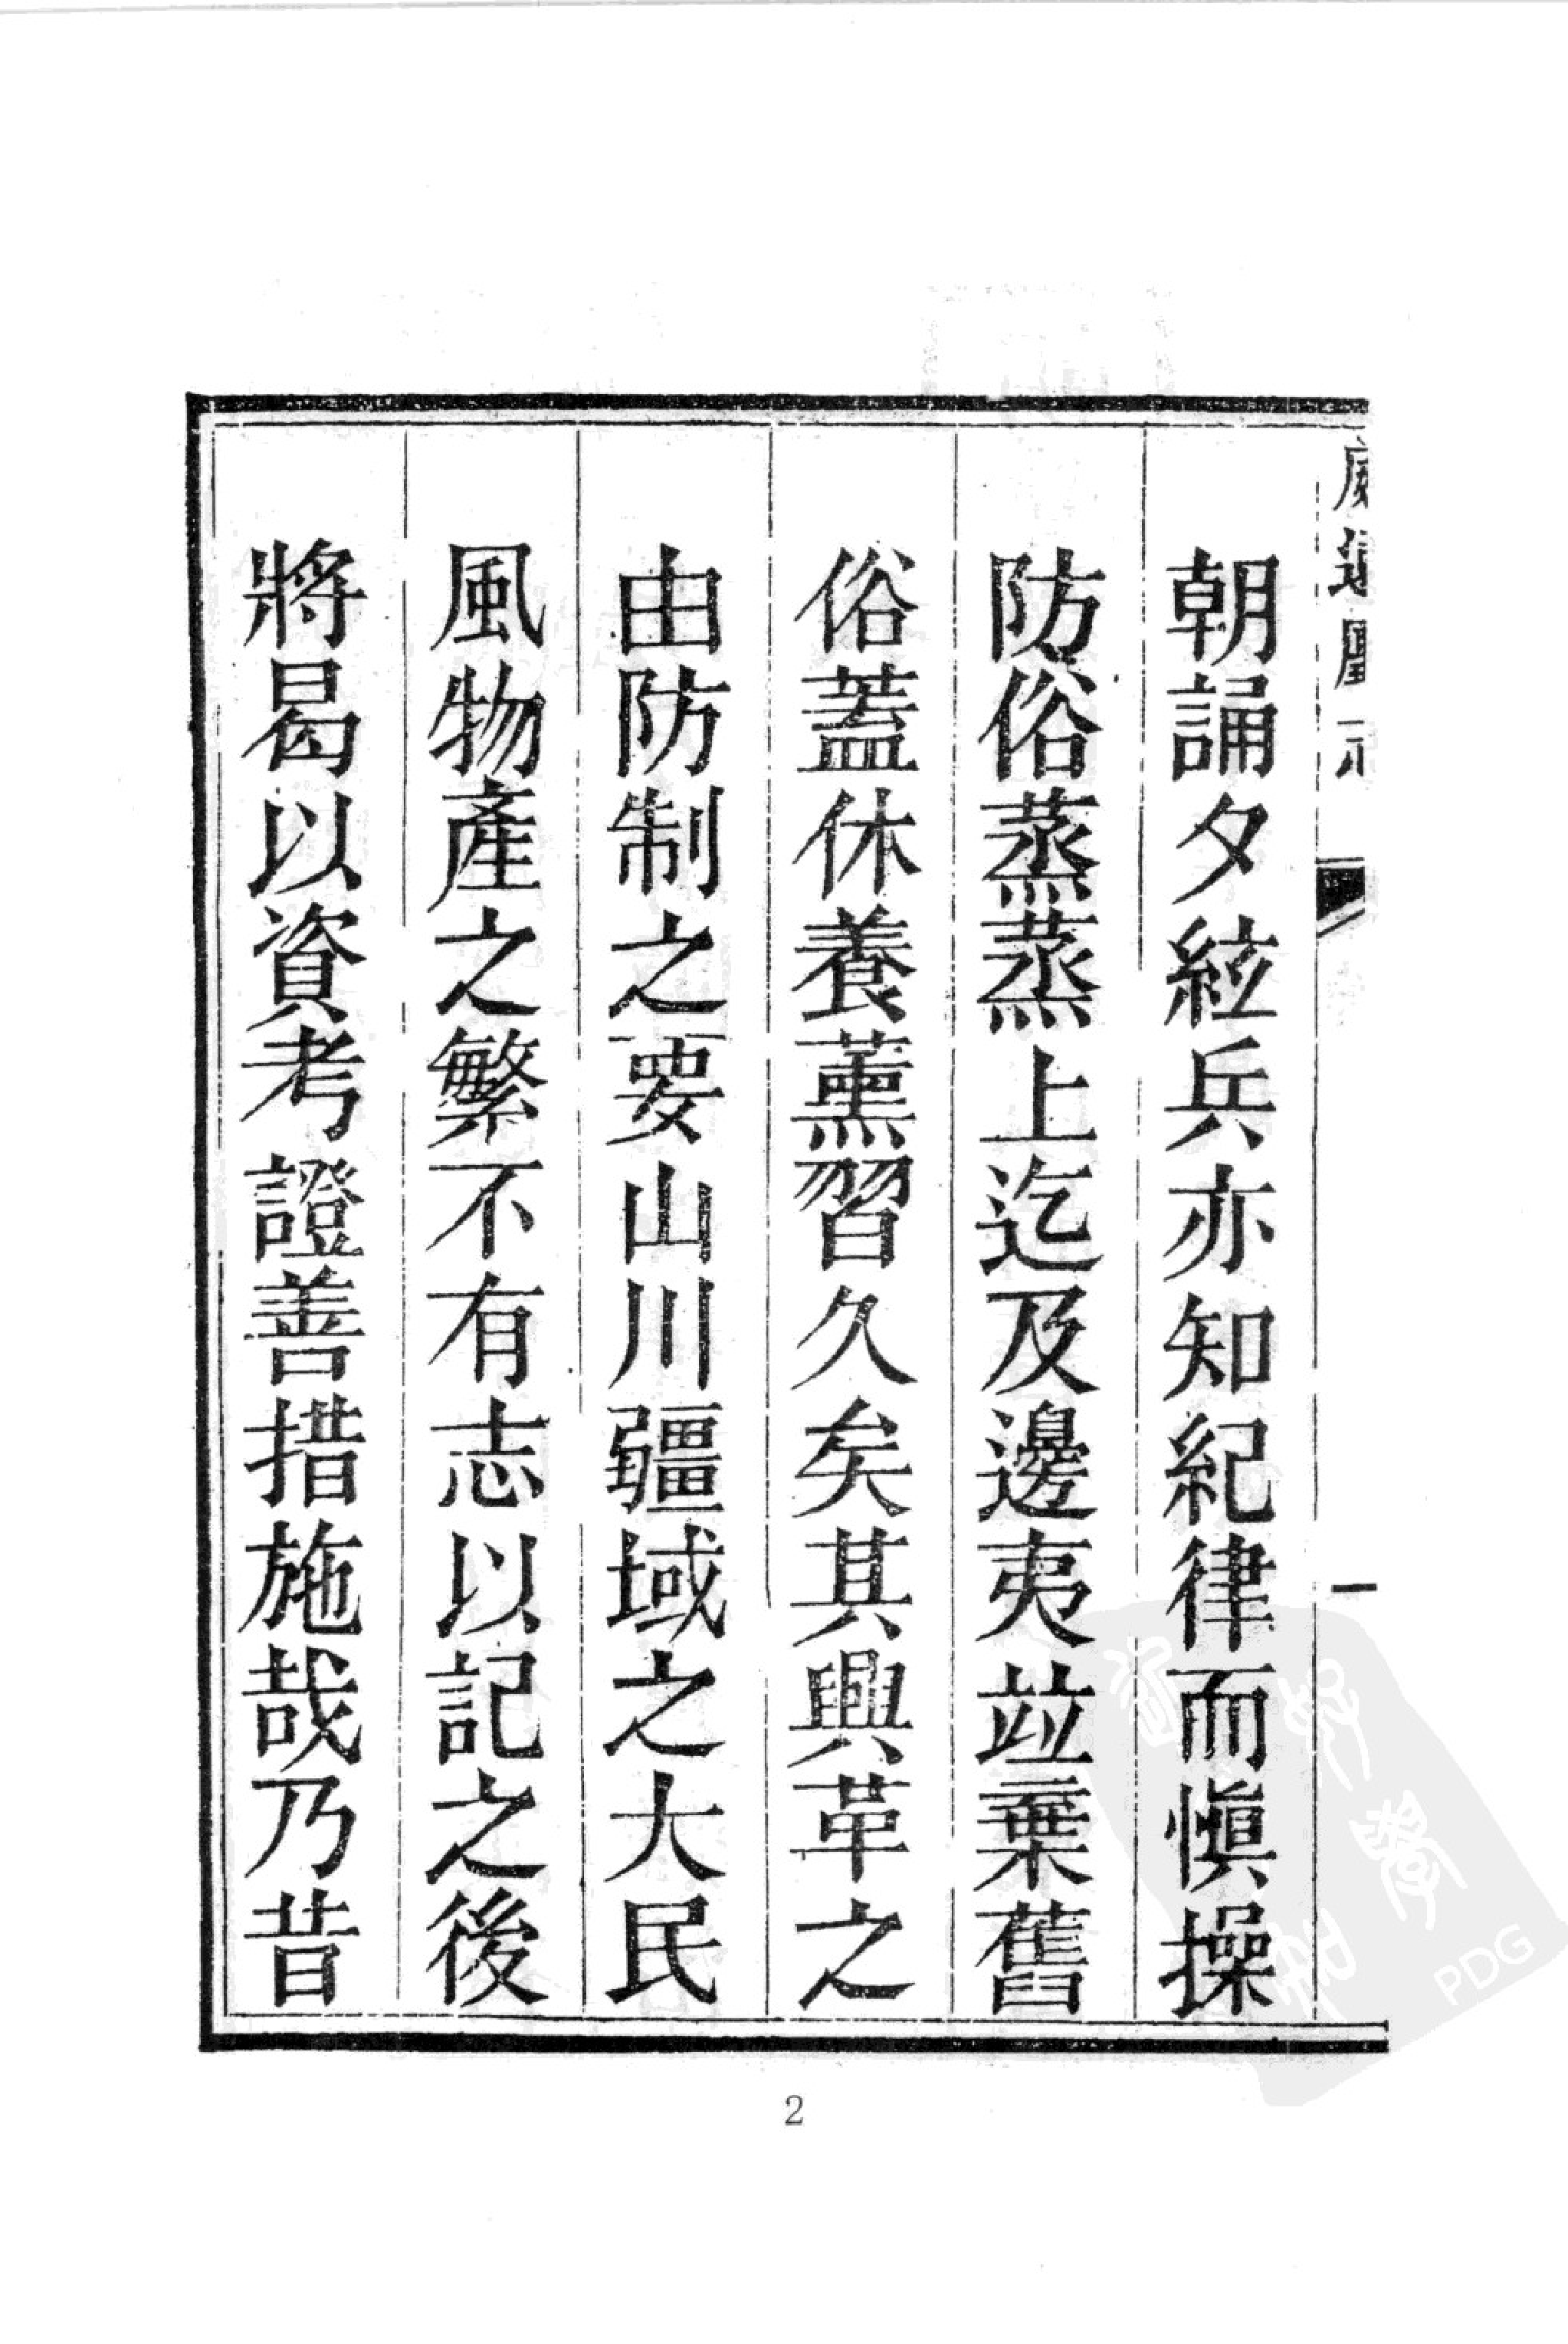 朝誦夕絃兵亦知紀律而愼操
防俗蒸蒸上迄及邊夷竝棄舊
俗蓋休養薰習久矣其興革之
由防制之要山川疆域之大民
風物產之繁不有志以記之後
將曷以資考證善措施哉乃昔
一
2
PDG